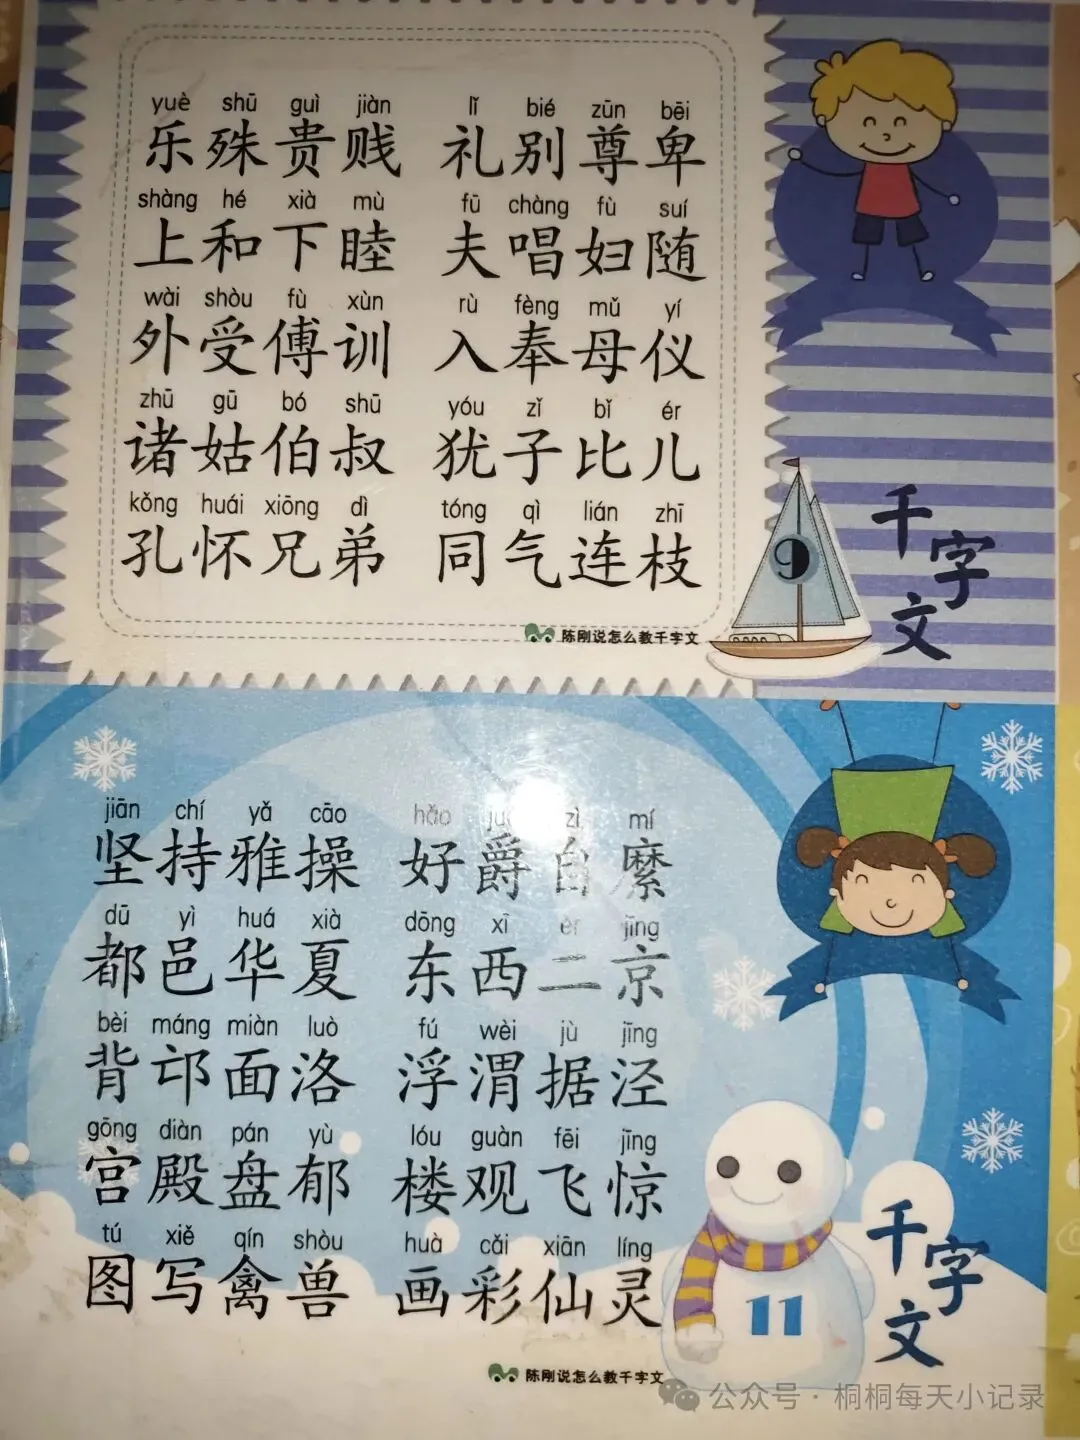 yuè shū guì jiàn lǐ bié zūn bēi
乐殊贵贱 礼别尊卑
shàng hé xià mù fū chàng fù suí
上和下睦 夫唱妇随
wài shòu fù xùn rù fèng mǔ yí
外受傅训 入奉母仪
zhū gū bó shū yóu zǐ bǐ ér
诸姑伯叔 犹子比儿
kǒng huái xiōng dì tóng qì lián zhī
孔怀兄弟 同气连枝
陈刚说怎么教千字文
9
千字文
jiān chí yǎ cāo hǎo zì mí
坚持雅操 好爵自縻
dū yì huá xià dōng xī èr jīng
都邑华夏 东西二京
bèi máng miàn luò fú wèi jù jīng
背邙面洛 浮渭据泾
gōng diàn pán yù lóu guàn fēi jīng
宫殿盘郁 楼观飞惊
tú xiě qín shòu huà cǎi xiān líng
图写禽兽 画彩仙灵
陈刚说怎么教千字文
11
千字文
公众号·桐桐每天小记录